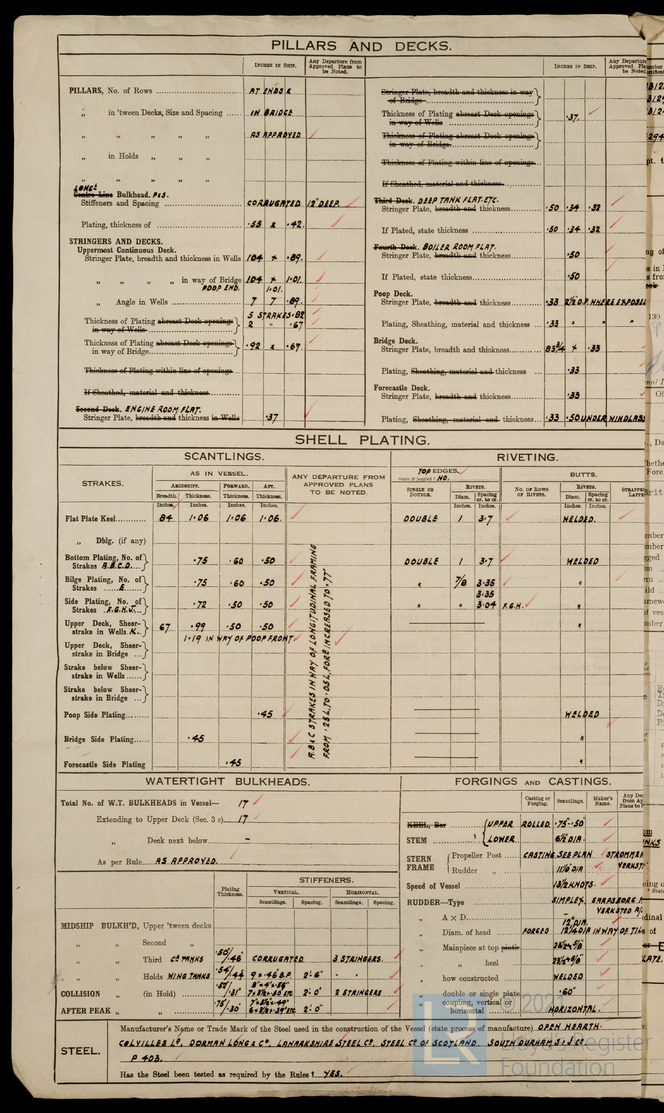 PILLARS AND DECKS.
INCHES IN SHIP.
Any Departure from Approved Plans to be Noted.
PILLARS, No. of Rows AT ENDS &
„ in 'tween Decks, Size and Spacing IN BRIDGE
„ „ „ „ AS APPROVED
„ in Holds „ „
„ „ „ „
LONGL
Centre Line Bulkhead. P&S.
Stiffeners and Spacing CORRUGATED 12" DEEP.
Plating, thickness of .55 & .42.
STRINGERS AND DECKS.
Uppermost Continuous Deck.
Stringer Plate, breadth and thickness in Wells 104 × .89.
„ „ „ „ in way of Bridge 104 × 1.01.
POOP END. 1.01.
„ Angle in Wells 7 7 .89
Thickness of Plating abreast Deck openings in way of Wells 5 STRAKES .82
2 „ .67
Thickness of Plating abreast Deck openings in way of Bridge .92 × .67.
Thickness of Plating within line of openings
If Sheathed, material and thickness
Second Deck. ENGINE ROOM FLAT.
Stringer Plate, breadth and thickness in Wells .37
INCHES IN SHIP.
Any Departure from Approved Plans to be Noted.
Stringer Plate, breadth and thickness in way of Bridge
Thickness of Plating abreast Deck openings in way of Wells .37.
Thickness of Plating abreast Deck openings in way of Bridge
Thickness of Plating within line of openings
If Sheathed, material and thickness
Third Deck. DEEP TANK FLAT. ETC.
Stringer Plate, breadth and thickness .50 .34 .32
If Plated, state thickness .50 .34 .32
Fourth Deck. BOILER ROOM FLAT.
Stringer Plate, breadth and thickness .50
If Plated, state thickness .50
Poop Deck.
Stringer Plate, breadth and thickness .33 2½ O.P. WHERE EXPOSED
Plating, Sheathing, material and thickness .33 „ „ „
Bridge Deck.
Stringer Plate, breadth and thickness 83¾ × .33
Plating, Sheathing, material and thickness .33
Forecastle Deck.
Stringer Plate, breadth and thickness .33
Plating, Sheathing, material and thickness .33 .50 UNDER WINDLASS
SHELL PLATING.
SCANTLINGS.
RIVETING.
STRAKES.
AS IN VESSEL.
ANY DEPARTURE FROM APPROVED PLANS TO BE NOTED
TOP EDGES.
State if joggled? NO.
BUTTS.
AMIDSHIPS. FORWARD. AFT.
Breadth. Thickness. Thickness. Thickness.
SINGLE OR DOUBLE.
RIVETS.
Diam. Spacing cr. to cr.
NO. OF ROWS OF RIVETS.
RIVETS.
Diam. Spacing cr. to cr.
Inches. Inches. Inches. Inches.
Inches Inches
Flat Plate Keel 84 1.06 1.06 1.06. DOUBLE 1 3.7 WELDED.
„ Dblg. (if any)
Bottom Plating, No. of Strakes A.B.C.D. .75 .60 .50 DOUBLE 1 3.7 WELDED
Bilge Plating, No. of Strakes E .75 .60 .50 „ 7/8 3.35 „
3.35
Side Plating, No. of Strakes .F.G.H.J. .72 .50 .50 „ „ 3.04 F.G.H. „
Upper Deck, Sheerstrake in Wells K. 67 .99 .50 .50 „
1.19 IN WAY OF POOP FRONT
Upper Deck, Sheerstrake in Bridge
Strake below Sheerstrake in Wells
Strake below Sheerstrake in Bridge
Poop Side Plating .45 WELDED
Bridge Side Plating .45 „
Forecastle Side Plating .45 „
A B & C STRAKES IN WAY OF LONGITUDINAL FRAMING
FROM .25L TO .05L FORD INCREASED TO .77"
WATERTIGHT BULKHEADS.
Total No. of W.T. BULKHEADS in Vessel— 17
Extending to Upper Deck (Sec. 3 c) 17
„ Deck next below -
As per Rule AS APPROVED.
Plating Thickness.
STIFFENERS.
VERTICAL. HORIZONTAL.
Scantlings. Spacing. Scantlings. Spacing.
MIDSHIP BULKH'D, Upper 'tween decks
„ „ Second „
„ „ Third CO TANKS .50/.46 CORRUGATED. 3 STRINGERS.
„ „ Holds WING TANKS .54/.44 9 × .46 B.P. 2'-6"
COLLISION „ (in Hold) 2'-0" 2 STRINGERS
AFTER PEAK „ „ 2'-0"
FORGINGS AND CASTINGS.
Casting or Forging. Scantlings. Maker's Name.
KEEL, Bar
STEM
UPPER ROLLED. .75-.50
LOWER 6½ DIA.
STERN FRAME
Propeller Post CASTING. SEE PLAN STROMMEN
Rudder „ 11⅝ DIA VERKSTED
Speed of Vessel 13½ KNOTS.
RUDDER—Type SIMPLEX. SARPSBORG M
VERKSTED A/S
„ A × D.
„ Diam. of head FORGED
„ Mainpiece at top pintle
„ „ heel
„ how constructed WELDED
„ double or single plate .60"
„ coupling, vertical or horizontal HORIZONTAL.
STEEL.
Manufacturer's Name or Trade Mark of the Steel used in the construction of the Vessel (state process of manufacture) OPEN HEARTH.
COLVILLES LD. DORMAN LONG & CO. LANARKSHIRE STEEL CO. STEEL CO OF SCOTLAND. SOUTH DURHAM S & I CO.
P 403.
Has the Steel been tested as required by the Rules? YES.
LR
© 202
Lloyd's Register
Foundation